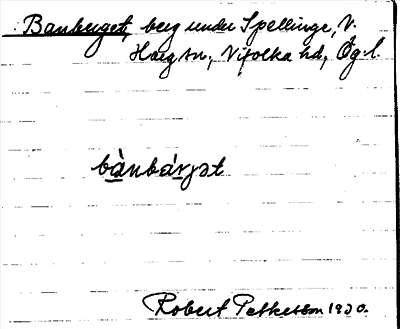 Banberget, berg under Spellinge, V.
Harg sn, Vifolka hd, Ög. l.
bànbárjət
Robert Petterson 1930.